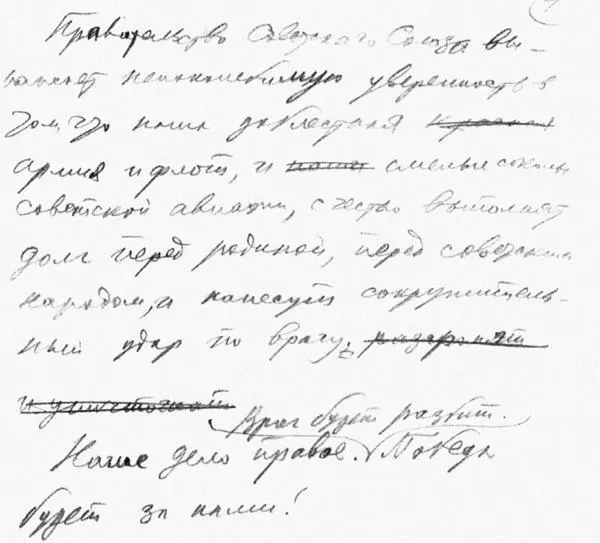 Правительство Советского Союза вы-
ражает непоколебимую уверенность в
том, что наша доблестная красная
армия и флот, и наши смелые соколы
советской авиации, с честью выполнят
долг перед родиной, перед советским
народом, и нанесут сокрушитель-
ный удар по врагу.
и уничтожат
Враг будет разбит.
Наше дело правое. Победа
будет за нами!